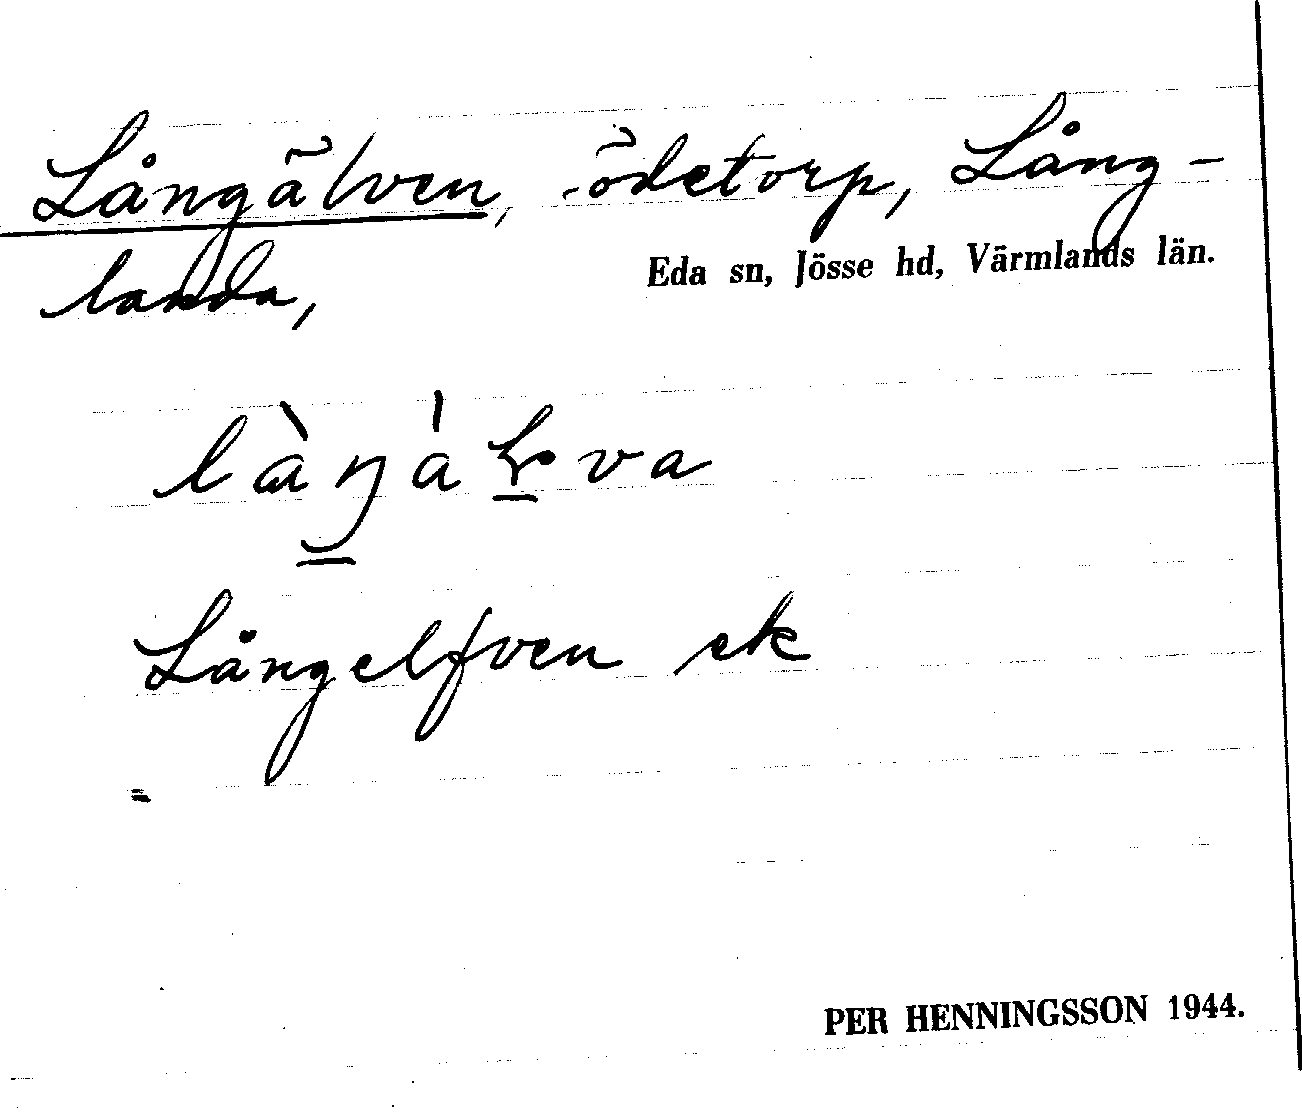 Långälven, ödetorp, Lång-
landa,
Eda sn, Jösse hd, Värmlands län.
Långelfven ek
PER HENNINGSSON 1944.